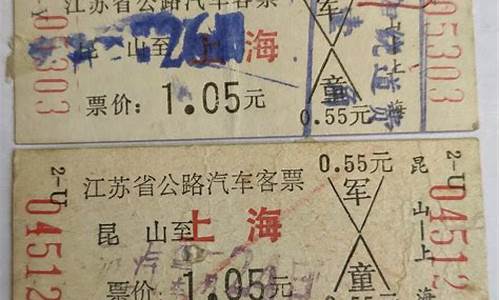 江苏省公路汽车客票
昆 山至上海
票价：1.05元
军
童
0.55元
昆山—上海
05303
05303
江苏省公路汽车客票
昆 山至上海
票价：1.05元
0.55元
军
童
0.55元
昆山—上海
2-U
04512
2-U
04512